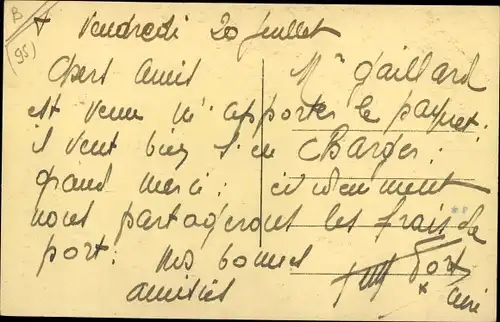 B
(95)
+ Vendredi 20 juillet
Chers amis Mr Gaillard
est venu m'apporter le paquet.
il veut bien s'en charger;
grand merci; évidemment
nous partagerons les frais de
port. mes bonnes
amitiés